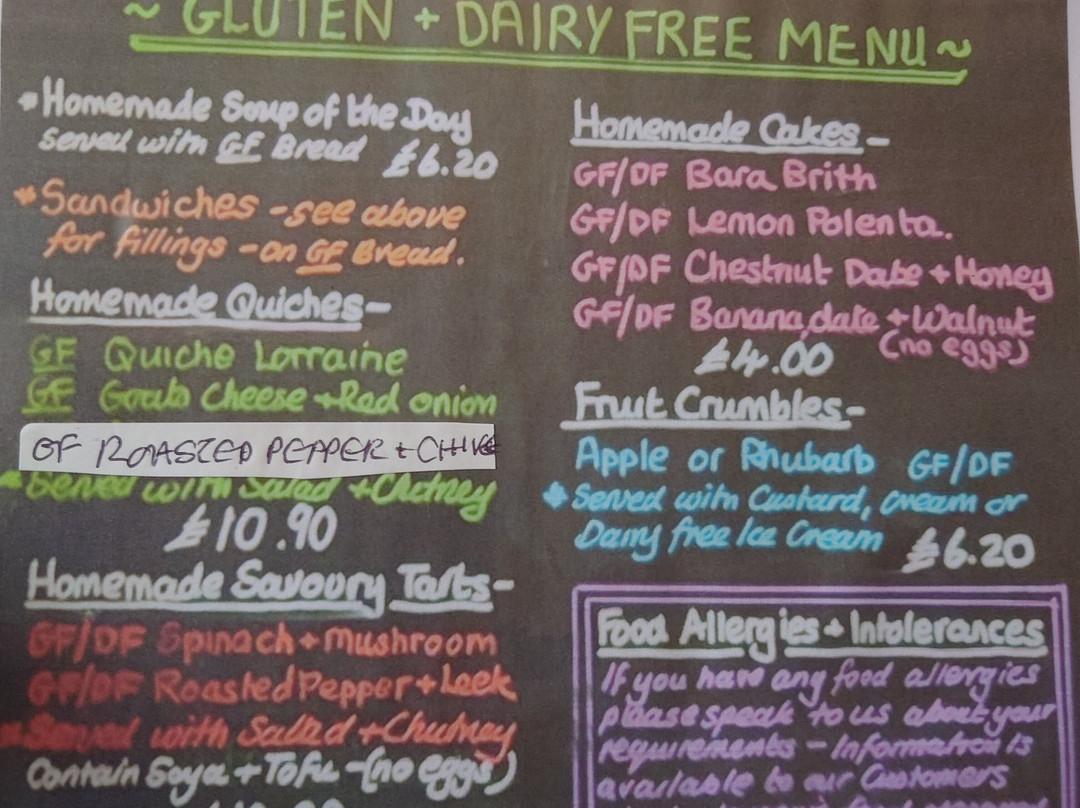 ~ GLUTEN + DAIRY FREE MENU ~
* Homemade Soup of the Day
served with GF Bread £6.20
* Sandwiches - see above
for fillings - on GF Bread.
Homemade Quiches -
GF Quiche Lorraine
GF Goats Cheese + Red onion
GF ROASTED PEPPER + CHIVE
Served with Salad + Chutney
£10.90
Homemade Savoury Tarts -
GF/DF Spinach + Mushroom
GF/DF Roasted Pepper + Leek
Served with Salad + Chutney
Contain Soya + Tofu - (no eggs)
Homemade Cakes -
GF/DF Bara Brith
GF/DF Lemon Polenta.
GF/DF Chestnut Date + Honey
GF/DF Banana, date + Walnut
(no eggs)
£4.00
Fruit Crumbles -
Apple or Rhubarb GF/DF
* Served with Custard, cream or
Dairy free Ice Cream £6.20
Food Allergies + Intolerances
If you have any food allergies
please speak to us about your
requirements - Information is
available to our Customers